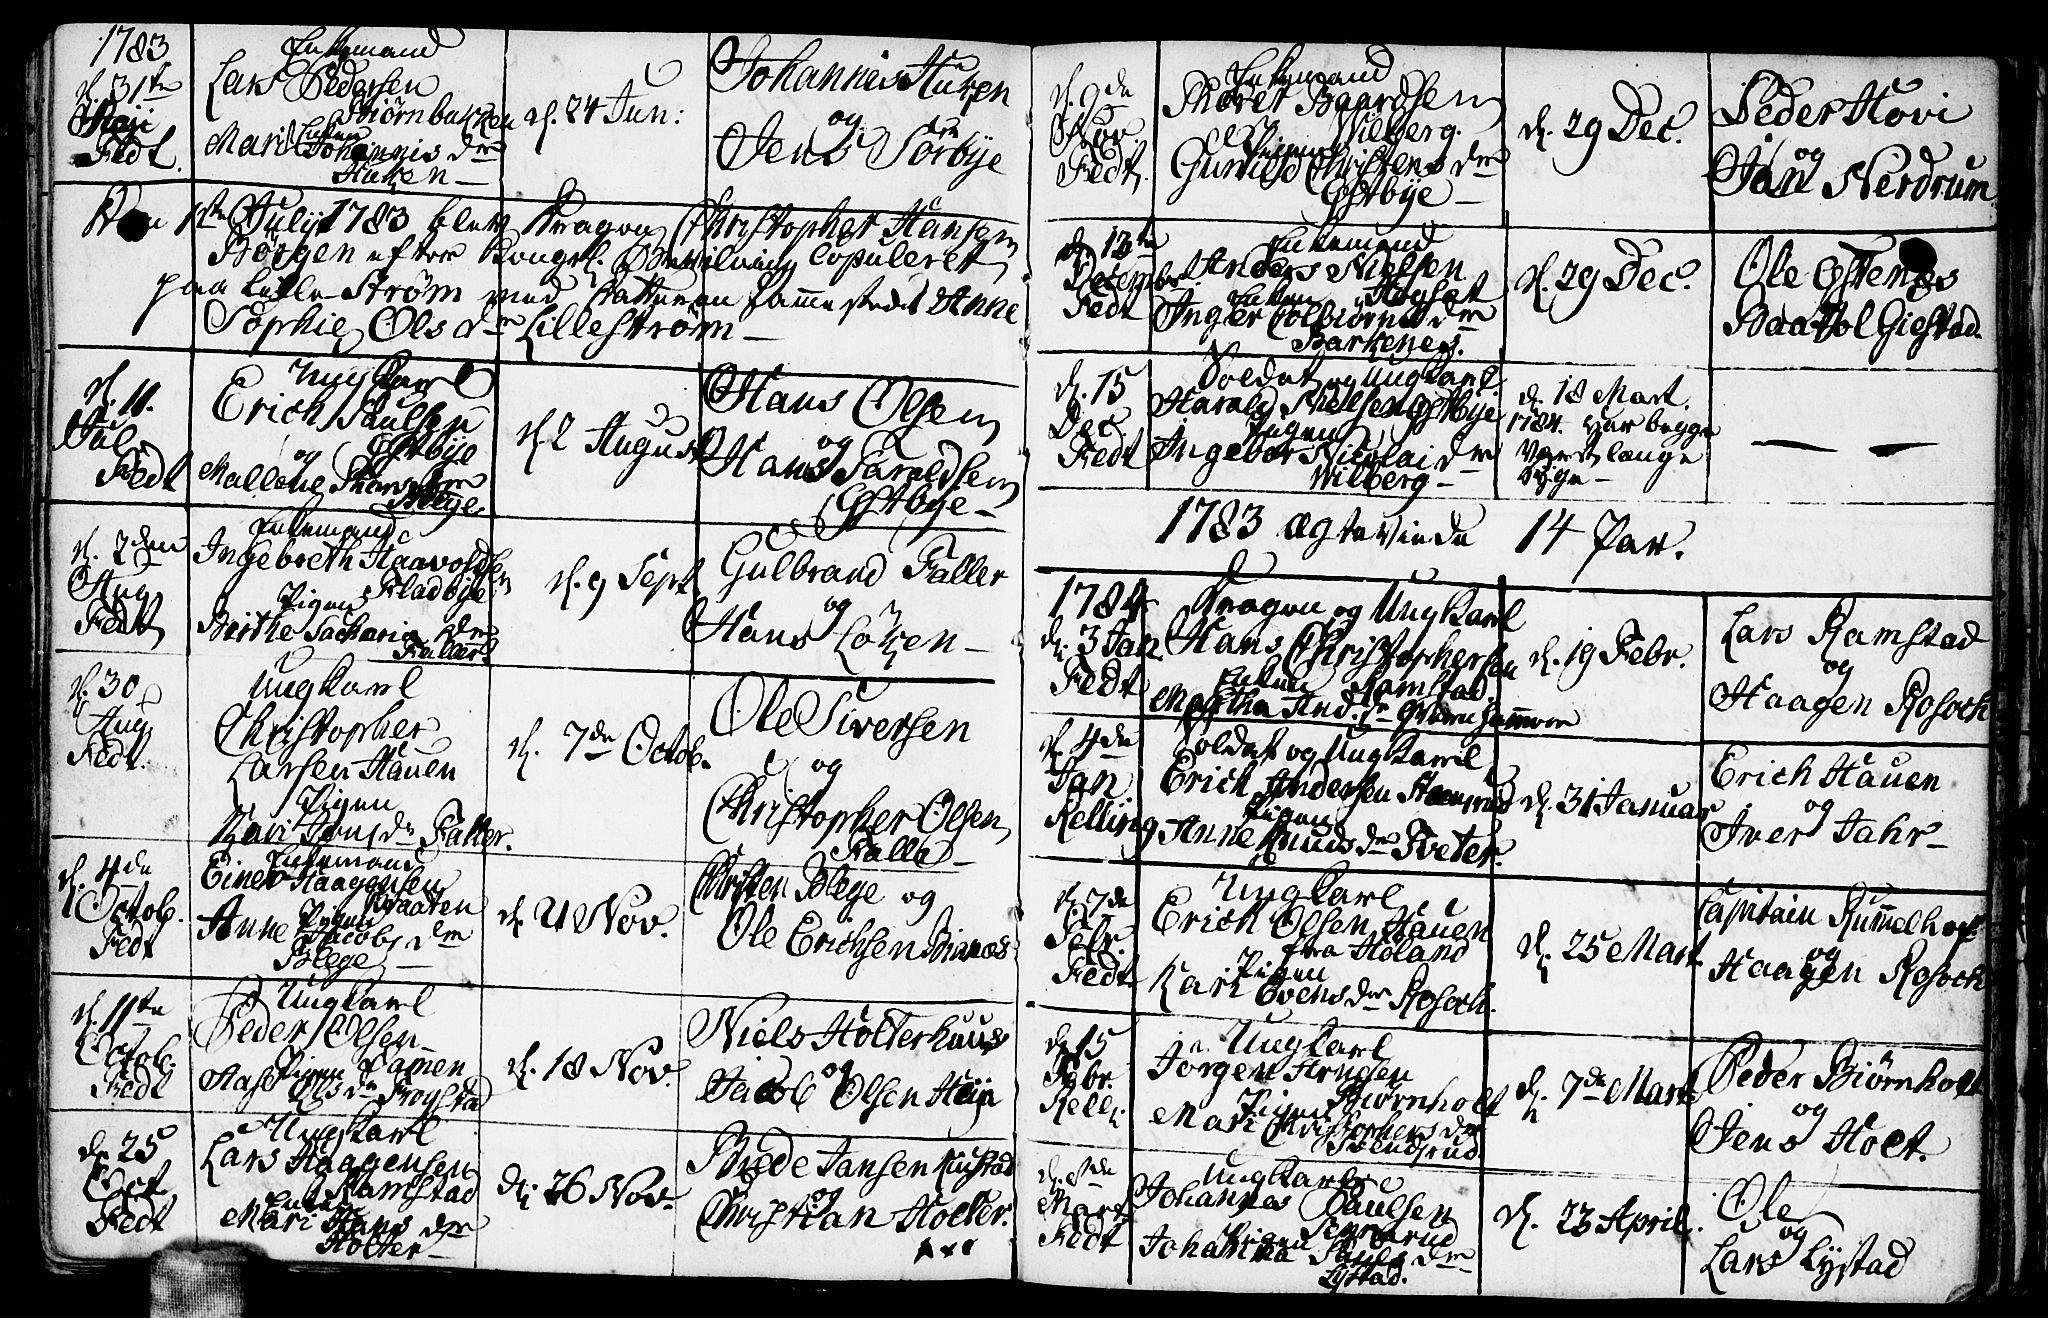 1783
d. 31te
Maji
Fedt.
Enkemand
Lars Pedersen
Biørnbakken
Enken
Mari Johannis dr
Huken
d. 24 Jun:
Johannis Huken
og
Jens Sørbye
Den 1ste Julij 1783 blev Dragon Christopher Hansen
Børgen efter Kongel. Bevilning Copuleret
paa Lille Strøm med Datteren sammesteds Anne
Sophie Ols dr Lillestrøm
d. 11.
Jul
Fedt
Ungkarl
Erich Paulsen
Østbye
og
Mallene Blege
d. 2 August
Hans Olsen
og
Hans Haraldsen
Østbye
d. 2den
Aug
Fedt
Enkemand
Ingebreth Haavoldsen
Fladbye
Pigen
Birthe Sacharia dr
Faller
d. 9 Sept
Gulbrand Faller
og
Hans Løken
d. 30
Aug
Fedt.
Ungkarl
Christopher
Larsen Hauen
Pigen
Kari Jons dr Faller.
d. 7de Octob.
Ole Siversen
og
Christopher Olsen
Falle
d. 4de
Octob.
Fedt
Enkemand
Einer Haagensen
Kraaten
Pigen
Anne Jacobs dr
Blege
d. 21 Nov.
Christen Blege og
Ole Erichsen Binæs
d. 11te
Octob.
Fedt
Ungkarl
Peder Olsen
Ramen
Pigen
Aase Ols dr Frogstad
d. 18 Nov.
Niels Holterhuus
og
Jacob Olsen Heija
d. 25
Oct.
Fedt
Ungkarl
Lars Haagensen
Ramstad
Enken
Mari Hans dr
Holter
d. 26 Nov.
Brede Jansen Rustad
og
Christian Holter.
d. 9de
Nov
Fedt.
Enkemand
Thoret Baardsen
Wilberg.
Pigen
Gunild Christens dr
Østbye
d. 29 Dec.
Peder Hovi
og
Jan Nerdrum
d. 12te
Decembr.
Fedt
Enkemand
Anders Nielsen
Høgset
Enken
Inger Colbiørns dr
Barkenes.
d. 29 Dec.
Ole Østenes
Baattol Giestad.
d. 15
Dec.
Fedt
Soldat og Ungkarl
Harald Nielsen Østbye
Pigen
Ingebor Nicolai dr
Wilberg
d. 18 Mart.
1784. var begge
været længe
syge
1783 Ægteviede 14 Par.
1784
d. 3 Jan
Fedt
Dragon og Ungkarl
Hans Christophersen
Ramstad
Enken
Martha And. dr Qvernhammer
d. 19 Febr.
Lars Ramstad
og
Haagen Rosoch
d. 4de
Jan
Relling
Soldat og Ungkarl
Erich Andersen
Pigen
Anne Knuds dr Tveter.
d. 31 Januar
Erich Hauen
og
Iver Jahr
d. 7de
Febr.
Fedt
Ungkarl
Erich Olsen Hauen
fra Høland
Pigen
Kari Evens dr Rosoch.
d. 25 Mart
Capitain Rummelhof
og
Haagen Rosoch
d. 15
Febr.
Relli.
Ungkarl
Jørgen Arnesen
Biørnholt
Pigen
Mari Christophers dr
Svendsrud
d. 7de Mart
Peder Biørnholt
og
Jens Holt.
d.
Mart
Fedt
Ungkarl
Johannes Paulsen
Pigen
Johanna Pauls dr
Lystad.
d. 23 April.
Ole
og
Lars Lystad